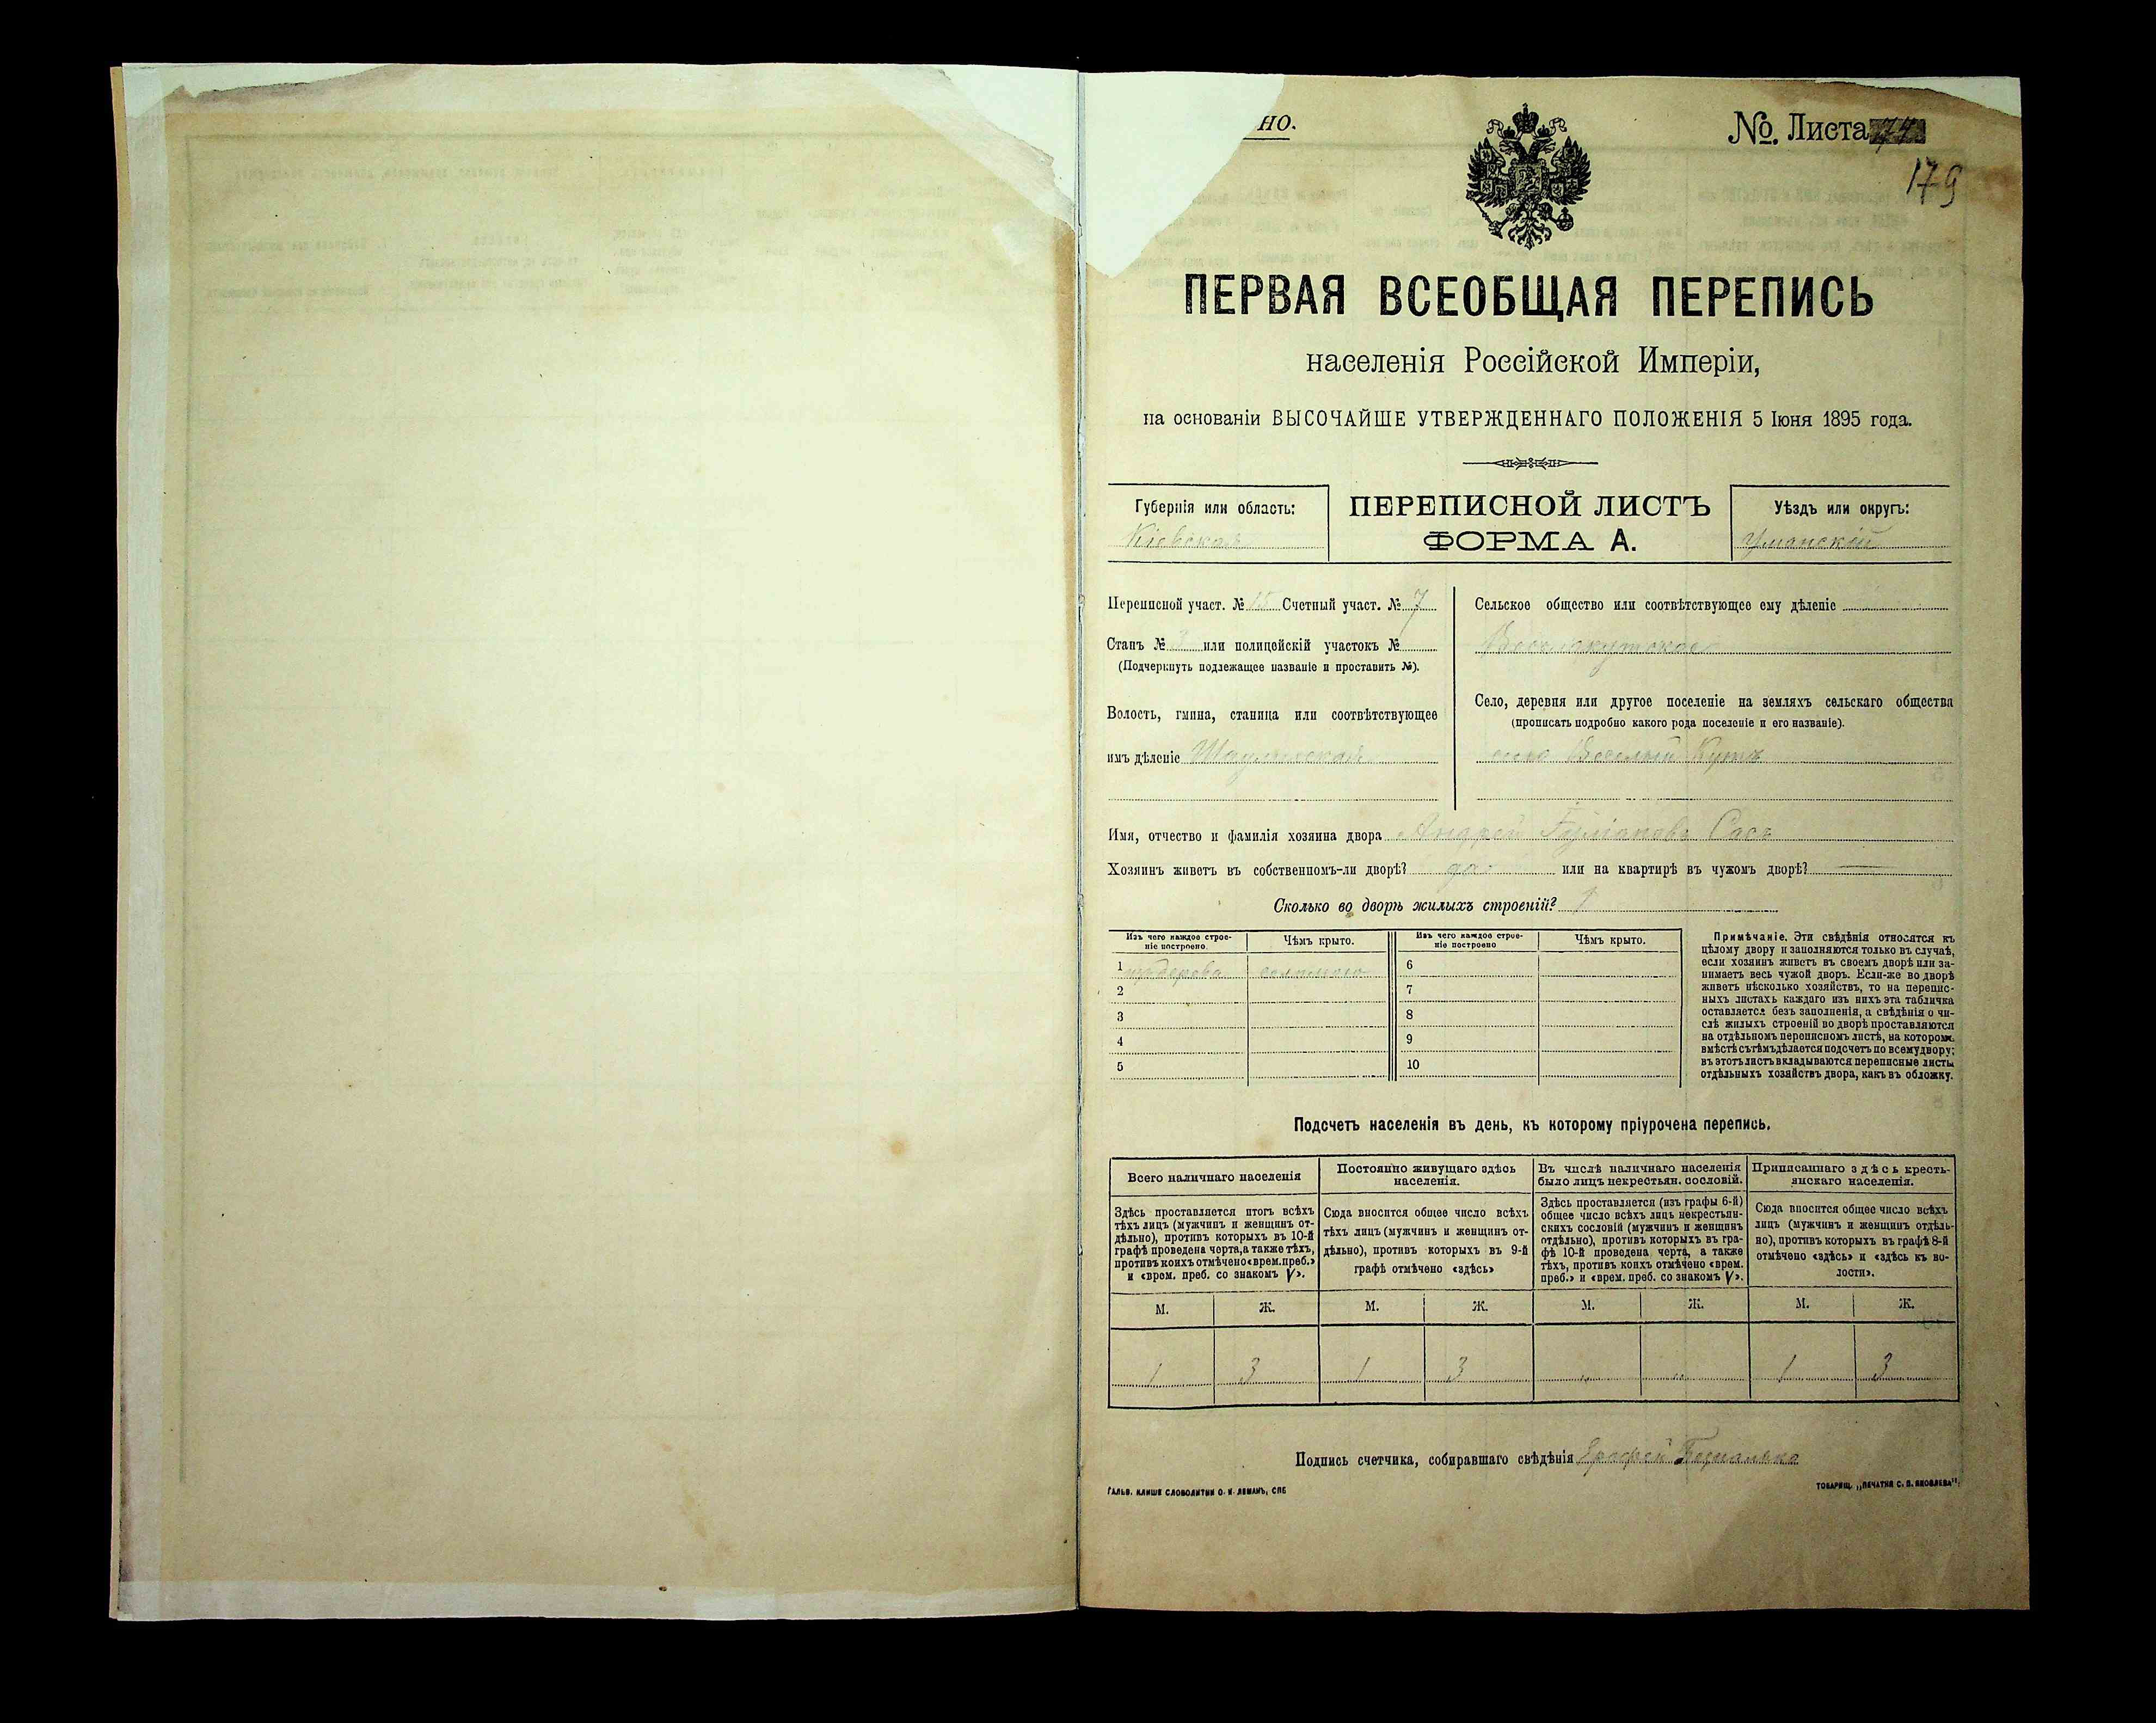 но.
№. Листа 74
179
ПЕРВАЯ ВСЕОБЩАЯ ПЕРЕПИСЬ
населенія Россійской Имперіи,
на основаніи ВЫСОЧАЙШЕ УТВЕРЖДЕННАГО ПОЛОЖЕНІЯ 5 Іюня 1895 года.
Губернія или область:
Кіевская
ПЕРЕПИСНОЙ ЛИСТЪ
ФОРМА А.
Уѣздъ или округъ:
Уманскій
Переписной участ. № 15 Счетный участ. № 7
Станъ № или полицейскій участокъ №
(Подчеркнуть подлежащее названіе и проставить №).
Волость, гмина, станица или соотвѣтствующее
имъ дѣленіе
Сельское общество или соотвѣтствующее ему дѣленіе
Веселокутское
Село, деревня или другое поселеніе на земляхъ сельскаго общества
(прописать подробно какого рода поселеніе и его названіе).
село Веселый Кутъ
Имя, отчество и фамилія хозяина двора Андрей Сасъ
Хозяинъ живетъ въ собственномъ-ли дворѣ? да или на квартирѣ въ чужомъ дворѣ? —
Сколько во дворѣ жилыхъ строеній? 1
Изъ чего каждое строе-
ніе построено.
Чѣмъ крыто.
Изъ чего каждое строе-
ніе построено
Чѣмъ крыто.
1 дерева соломою
2
3
4
5
6
7
8
9
10
Примѣчаніе. Эти свѣдѣнія относятся къ
цѣлому двору и заполняются только въ случаѣ,
если хозяинъ живетъ въ своемъ дворѣ или за-
нимаетъ весь чужой дворъ. Если-же во дворѣ
живетъ нѣсколько хозяйствъ, то на перепис-
ныхъ листахъ каждаго изъ нихъ эта табличка
оставляется безъ заполненія, а свѣдѣнія о чи-
слѣ жилыхъ строеній во дворѣ проставляются
на отдѣльномъ переписномъ листѣ, на которомъ
вмѣстѣ съ тѣмъ дѣлается подсчетъ по всему двору;
въ этотъ листъ вкладываются переписные листы
отдѣльныхъ хозяйствъ двора, какъ въ обложку.
Подсчетъ населенія въ день, къ которому пріурочена перепись.
Всего наличнаго населенія
Здѣсь проставляется итогъ всѣхъ
тѣхъ лицъ (мужчинъ и женщинъ от-
дѣльно), противъ которыхъ въ 10-й
графѣ проведена черта, а также тѣхъ,
противъ коихъ отмѣчено «врем. преб.»
и «врем. преб. со знакомъ V».
Постоянно живущаго здѣсь
населенія.
Сюда вносится общее число всѣхъ
тѣхъ лицъ (мужчинъ и женщинъ от-
дѣльно), противъ которыхъ въ 9-й
графѣ отмѣчено «здѣсь»
Въ числѣ наличнаго населенія
было лицъ некрестьян. сословій.
Здѣсь проставляется (изъ графы 6-й)
общее число всѣхъ лицъ некрестьян-
скихъ сословій (мужчинъ и женщинъ
отдѣльно), противъ которыхъ въ гра-
фѣ 10-й проведена черта, а также
тѣхъ, противъ коихъ отмѣчено «врем.
преб.» и «врем. преб. со знакомъ V».
Приписаннаго здѣсь кресть-
янскаго населенія.
Сюда вносится общее число всѣхъ
лицъ (мужчинъ и женщинъ отдѣль-
но), противъ которыхъ въ графѣ 8-й
отмѣчено «здѣсь» и «здѣсь къ во-
лости».
М. Ж. М. Ж. М. Ж. М. Ж.
1 3 1 3 „ „ 1 3
Подпись счетчика, собиравшаго свѣдѣнія
ГАЛЬВ. КЛИШЕ СЛОВОЛИТНИ О. И. ЛЕМАНЪ, СПБ
ТОВАРИЩ. „ПЕЧАТНЯ С. П. ЯКОВЛЕВА".